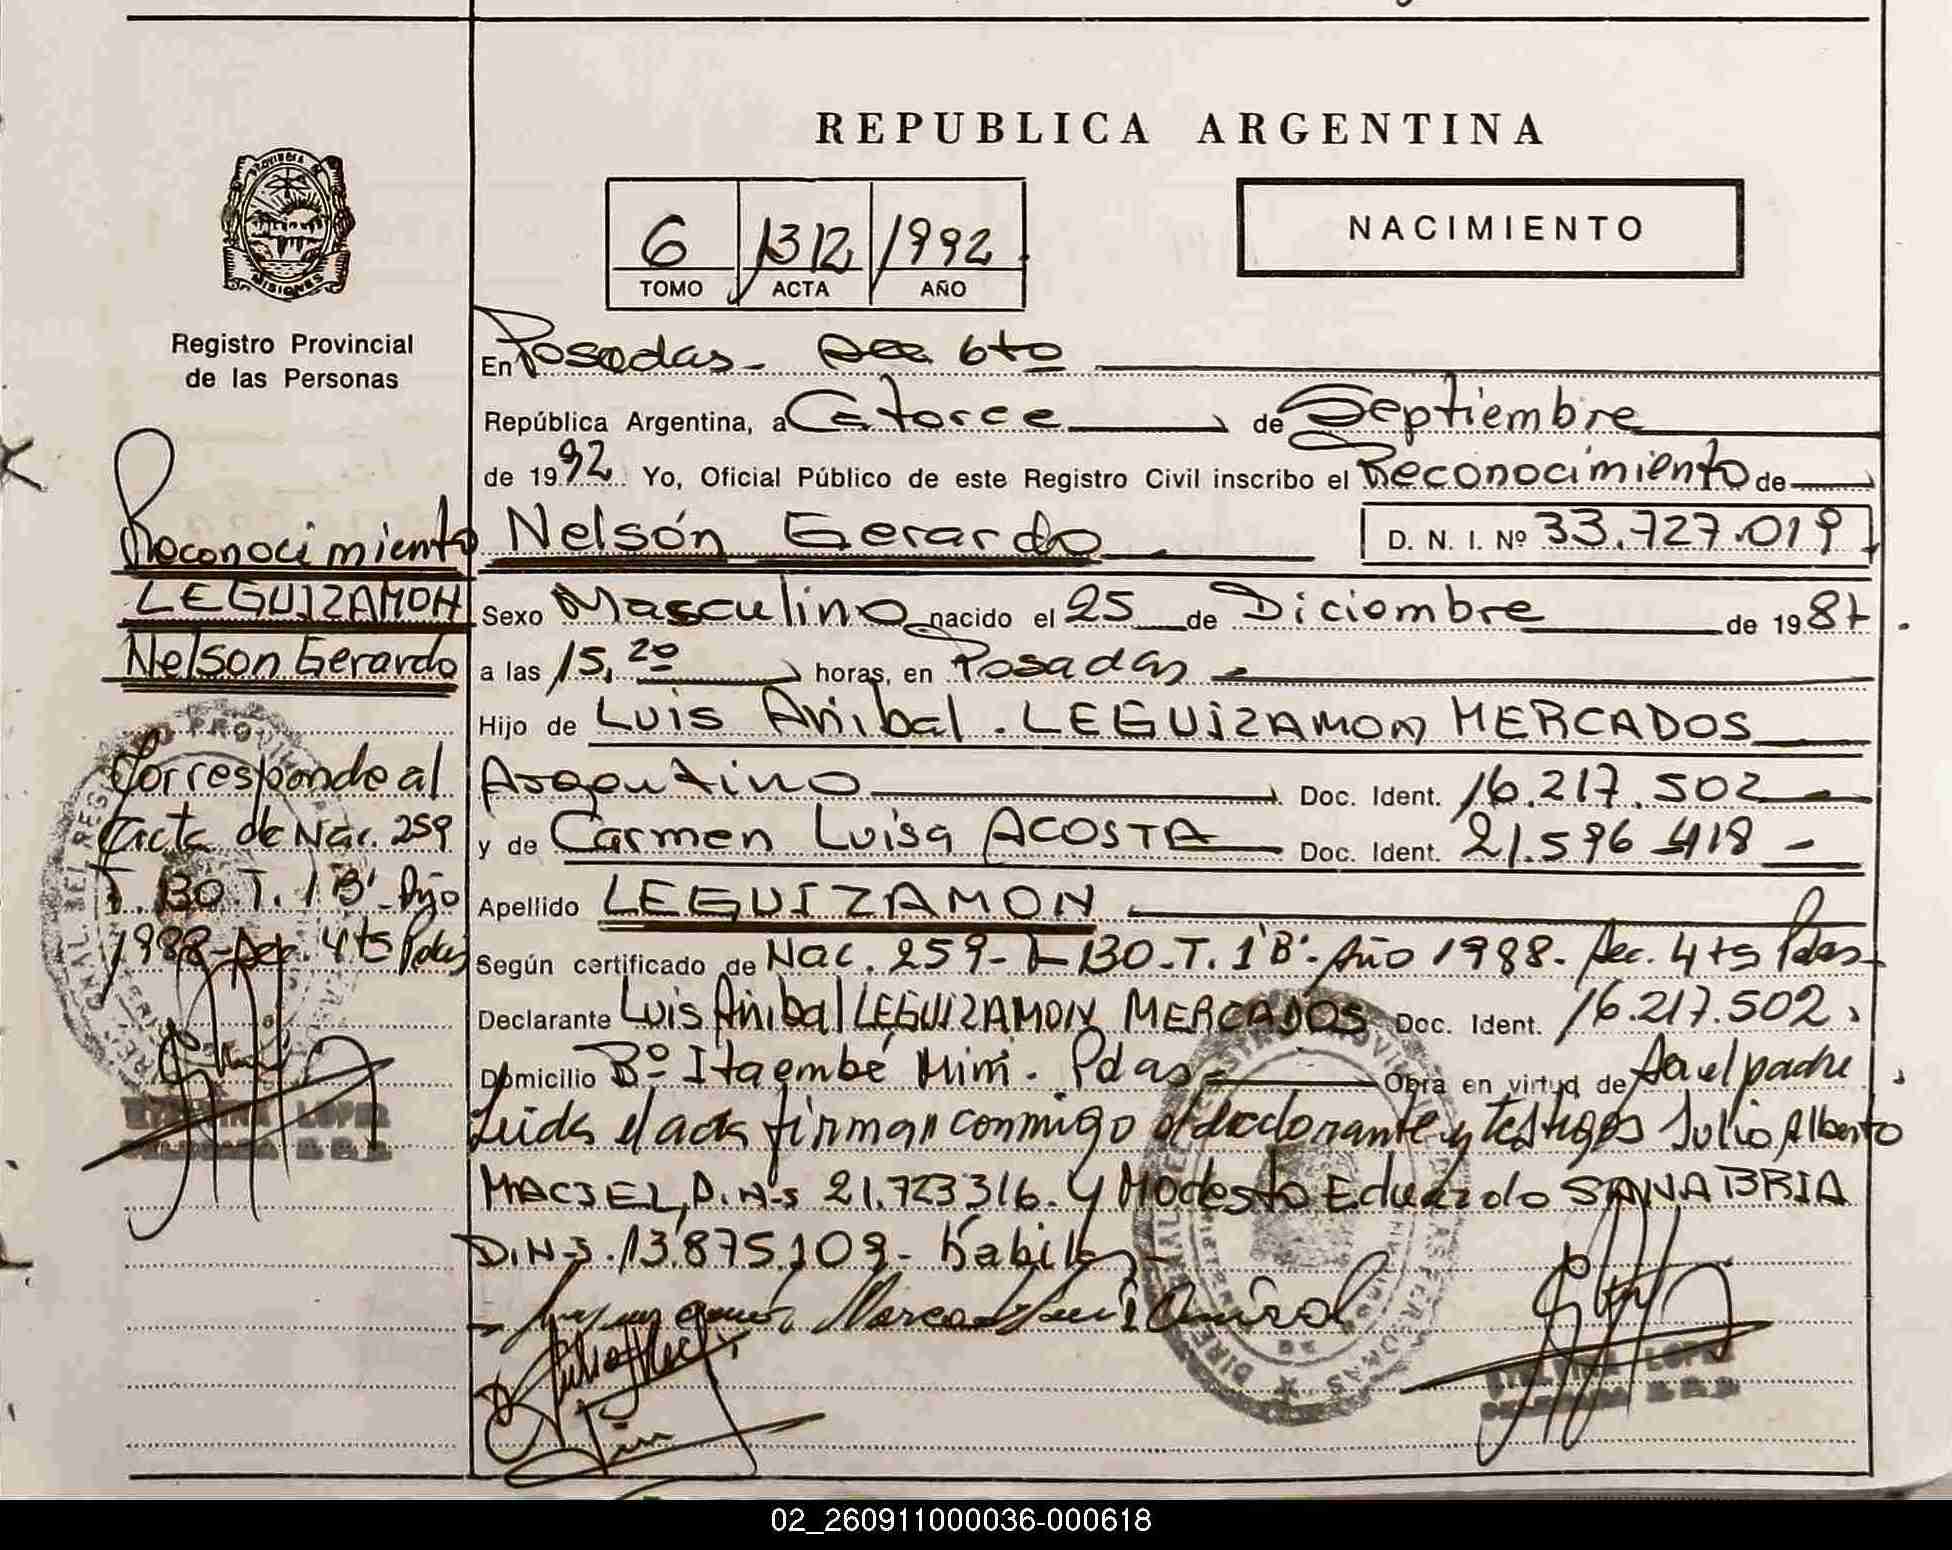 REPUBLICA ARGENTINA
NACIMIENTO
6 1312 1992
TOMO ACTA AÑO
PROVINCIA
MISIONES
Registro Provincial
de las Personas
Reconocimiento
LEGUIZAMON
Nelson Gerardo
Corresponde al
Acta de Nac. 259
T. 130 T. 1 "B" Año
1988 - Sec. 4ta Pdas
En Posadas - Sec. 6to
República Argentina, a Catorce de Septiembre
de 1992 Yo, Oficial Público de este Registro Civil inscribo el Reconocimiento de
Nelsón Gerardo D. N. I. Nº 33.727.019
Sexo Masculino nacido el 25 de Diciembre de 1987
a las 15,20 horas, en Posadas -
Hijo de Luis Anibal. LEGUIZAMON MERCADOS
Argentino Doc. Ident. 16.217.502 -
y de Carmen Luisa ACOSTA Doc. Ident. 21.596 418 -
Apellido LEGUIZAMON
Según certificado de Nac. 259 - T 130 - T. 1 "B" - Año 1988 - Sec. 4ta Pdas -
Declarante Luis Anibal LEGUIZAMON MERCADOS Doc. Ident. 16.217.502.
Domicilio Bº Itaembé Mini. Pdas Obra en virtud de Ser el padre
Leida el acta firman conmigo el declarante y testigos Julio Alberto
MACIEL, D.N.I 21.723316. y Modesto Eduardo SANABRIA
D.N.I. 13.875.109 -
LOPEZ
LOPEZ
02_260911000036-000618